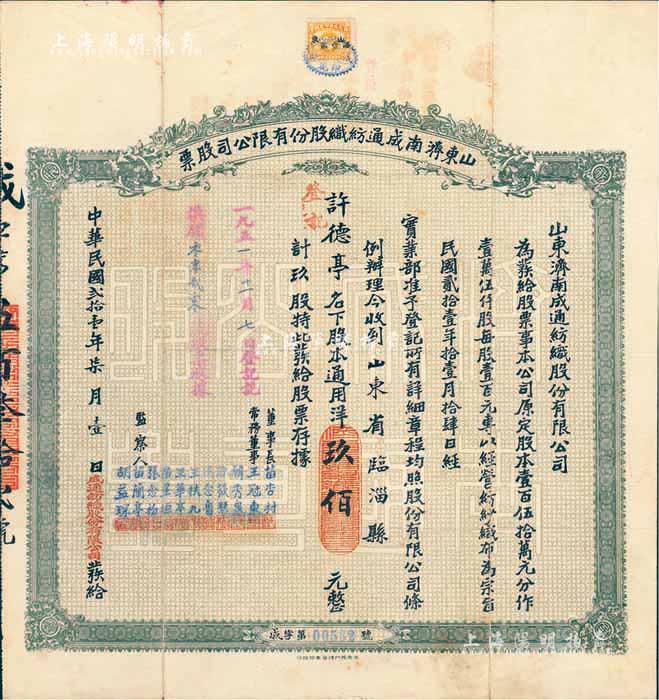 上海陽明拍賣
山東濟南成通紡織股份有限公司股票
山東濟南成通紡織股份有限公司
為發給股票事本公司原定股本壹百伍拾萬元分作
壹萬伍仟股每股壹百元專以經營紡紗織布為宗旨
民國貳拾壹年拾壹月拾肆日經
實業部准予登記所有詳細章程均照股份有限公司條
例辦理今收到山東省臨淄縣
許德亭名下股本通用洋玖佰元整
計玖股特此發給股票存據
登記
一九五一年十一月七日登記訖
董事長苗杏村
常務董事王冠東
王扶九
王華亭
張念椿
監察人苗蘭亭
胡益琛
中華民國貳拾壹年柒月壹日成通紡織股份有限公司發給
成字第伍百叁拾貳號
成字第00532號